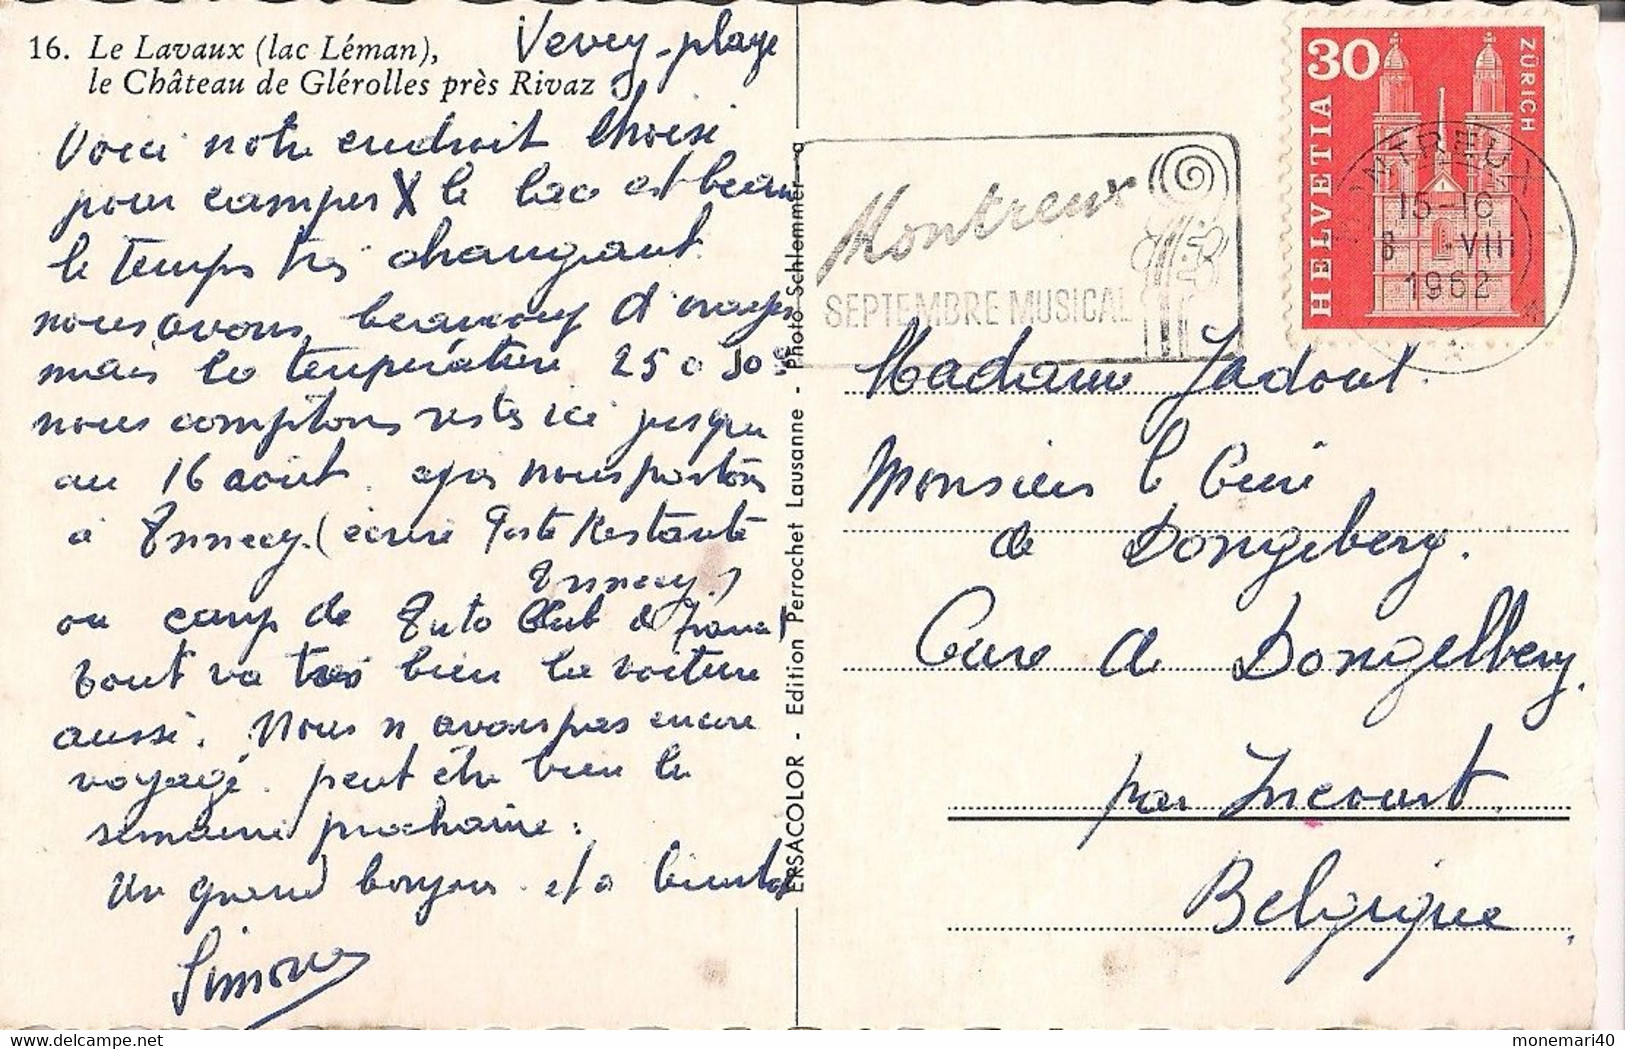 16. Le Lavaux (lac Léman),
le Château de Glérolles près Rivaz
Vevey-plage
Voici notre endroit choisi
pour camper X le lac est beau
le temps très changeant
nous avons beaucoup d'orages
mais la température 25 a 30°
nous comptons rester ici jusqu'au
au 16 août. après nous partons
à Annecy. (écrire Poste Restante
Annecy)
ou camp de Auto Club de France
tout va très bien la voiture
aussi. Nous n'avons pas encore
voyagé. peut être bien la
semaine prochaine.
Un grand bonjour et a bientot
Simone
ERSACOLOR - Edition Perrochet Lausanne - Photo Schlemmer
Montreux
SEPTEMBRE MUSICAL
30
HELVETIA
ZÜRICH
MONTREUX 1
15-16
8 -VIII
1962
Madame Jadout.
Monsieur le Curé
de Dongelberg.
Cure de Dongelberg.
par Incourt.
Belgique
monemari40